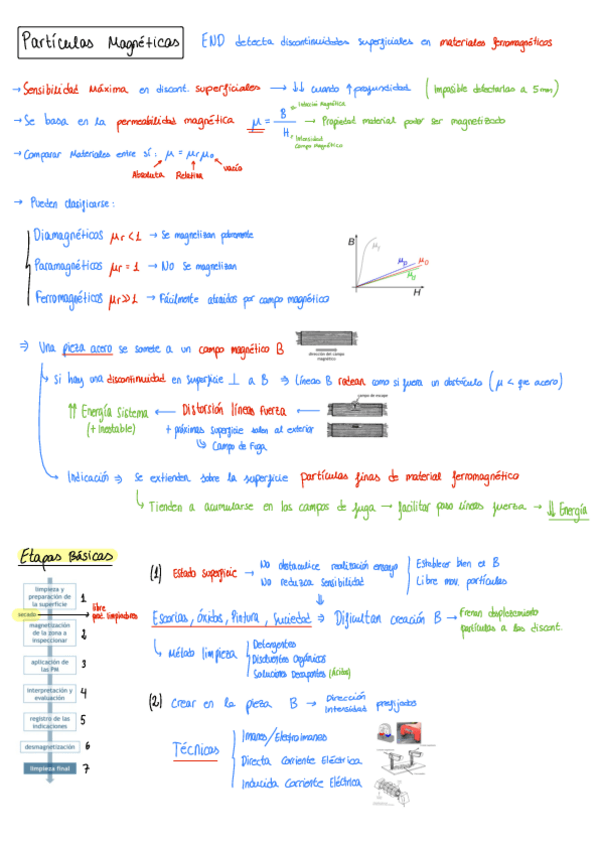 Partículas Magnéticas END detecta discontinuidades superficiales en materiales ferromagnéticos
→ Sensibilidad Máxima en discont. superficiales → ↓↓ cuando ↑ profundidad (Imposible detectarlas a 5mm)
→ Se basa en la permeabilidad magnética μ = B / H → Propiedad material poder ser magnetizado
Inducción Magnética
Intensidad Campo Magnético
→ Comparar Materiales entre sí: μ = μr μo
Absoluta Relativa vacío
→ Pueden clasificarse:
Diamagnéticos μr < 1 → Se magnetizan pobremente
Paramagnéticos μr = 1 → NO Se magnetizan
Ferromagnéticos μr >> 1 → Fácilmente atraídos por campo magnético
B μf μp μ0 μd H
⇒ Una pieza acero se somete a un campo magnético B
dirección del campo magnético
Si hay una discontinuidad en superficie ⊥ a B ⇒ líneas B rodean como si fuera un obstáculo (μ < que acero)
campo de escape
↑↑ Energía Sistema ← Distorsión líneas fuerza ←
(+ Inestable) + próximas superficie salen al exterior
↳ Campo de Fuga
Indicación ⇒ Se extienden sobre la superficie partículas finas de material ferromagnético
↳ Tienden a acumularse en los campos de fuga → facilitar paso líneas fuerza → ↓↓ Energía
Etapas Básicas
limpieza y preparación de la superficie 1
secado → libre
magnetización de la zona a inspeccionar 2
aplicación de las PM 3
interpretación y evaluación 4
registro de las indicaciones 5
desmagnetización 6
limpieza final 7
(1) Estado superficie → No obstaculice realización ensayo
No reduzca Sensibilidad
Establecer bien el B
Libre mov. partículas
Escorias, óxidos, Pintura, suciedad ⇒ Dificultan creación B → Frenan desplazamiento
partículas a las discont.
↳ Método limpieza
Detergentes
Disolventes Orgánicos
Soluciones Decapantes (Ácidos)
(2) Crear en la pieza B → Dirección
Intensidad prefijados
Técnicas
Imanes/Electroimanes
Directa Corriente Eléctrica
Inducida Corriente Eléctrica